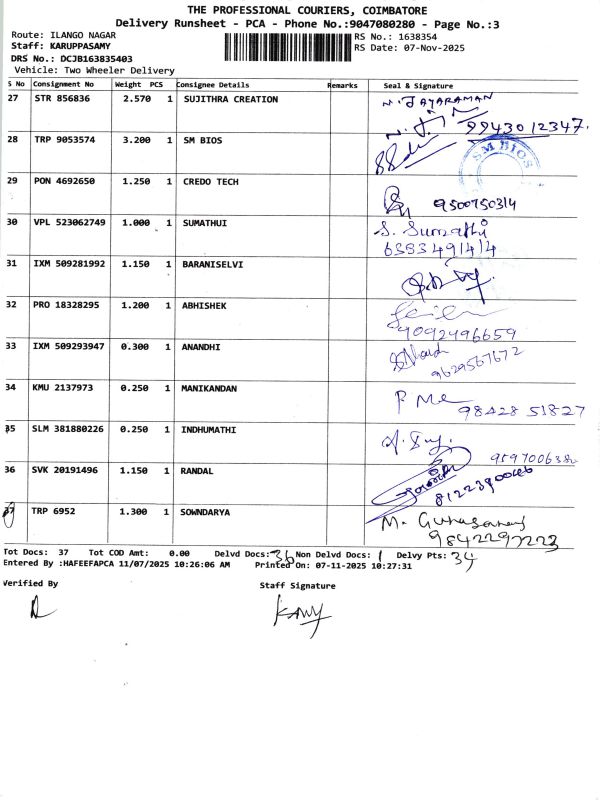 THE PROFESSIONAL COURIERS, COIMBATORE
Delivery Runsheet - PCA - Phone No.:9047080280 - Page No.:3
Route: ILANGO NAGAR
RS No.: 1638354
Staff: KARUPPASAMY
RS Date: 07-Nov-2025
DRS No.: DCJB163835403
Vehicle: Two Wheeler Delivery
S No Consignment No Weight PCS Consignee Details Remarks Seal & Signature
27 STR 856836 2.570 1 SUJITHRA CREATION N. JAYARAMAN
9943012347.
28 TRP 9053574 3.200 1 SM BIOS
SM BIOS
29 PON 4692650 1.250 1 CREDO TECH 9500750314
30 VPL 523062749 1.000 1 SUMATHUI S. Sumathi
6383491414
31 IXM 509281992 1.150 1 BARANISELVI
32 PRO 18328295 1.200 1 ABHISHEK
9092496659
33 IXM 509293947 0.300 1 ANANDHI
9629567672
34 KMU 2137973 0.250 1 MANIKANDAN
98428 51827
35 SLM 381880226 0.250 1 INDHUMATHI
36 SVK 20191496 1.150 1 RANDAL
37 TRP 6952 1.300 1 SOWNDARYA
9842297223
Tot Docs: 37 Tot COD Amt: 0.00 Delvd Docs: 36 Non Delvd Docs: 1 Delvy Pts: 34
Entered By :HAFEEFAPCA 11/07/2025 10:26:06 AM Printed On: 07-11-2025 10:27:31
Verified By Staff Signature